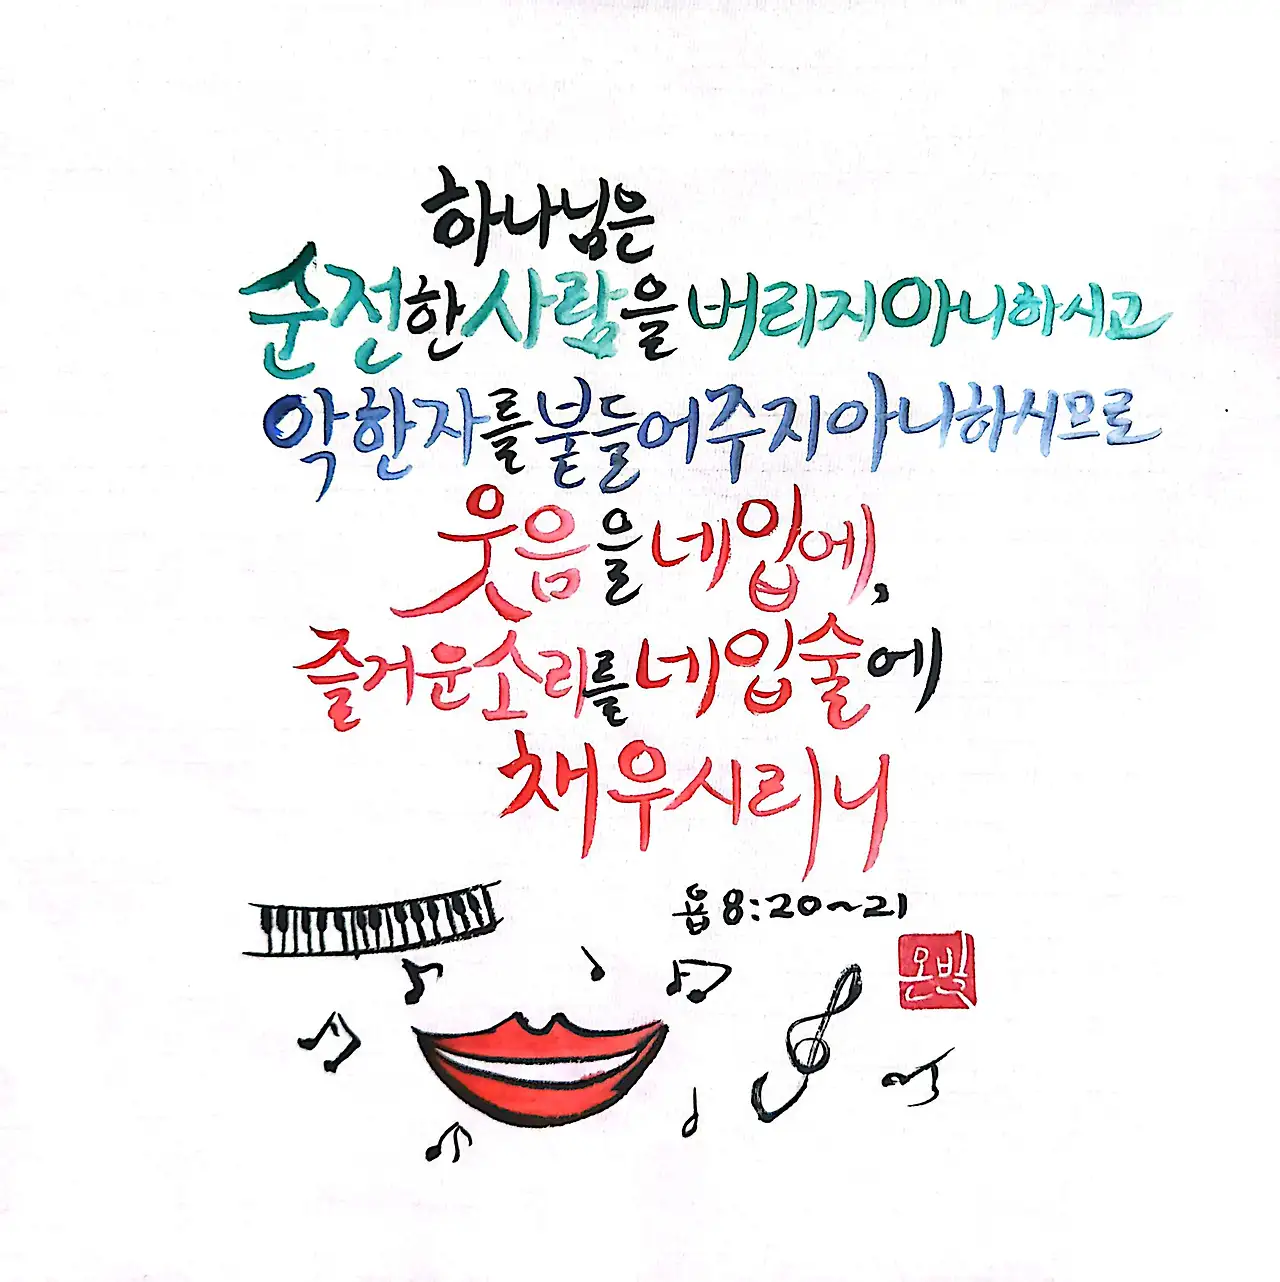 하나님은
순전한 사람을 버리지 아니하시고
악한 자를 붙들어주지 아니하시므로
웃음을 네 입에,
즐거운 소리를 네 입술에
채우시리니
욥 8:20~21
온빛